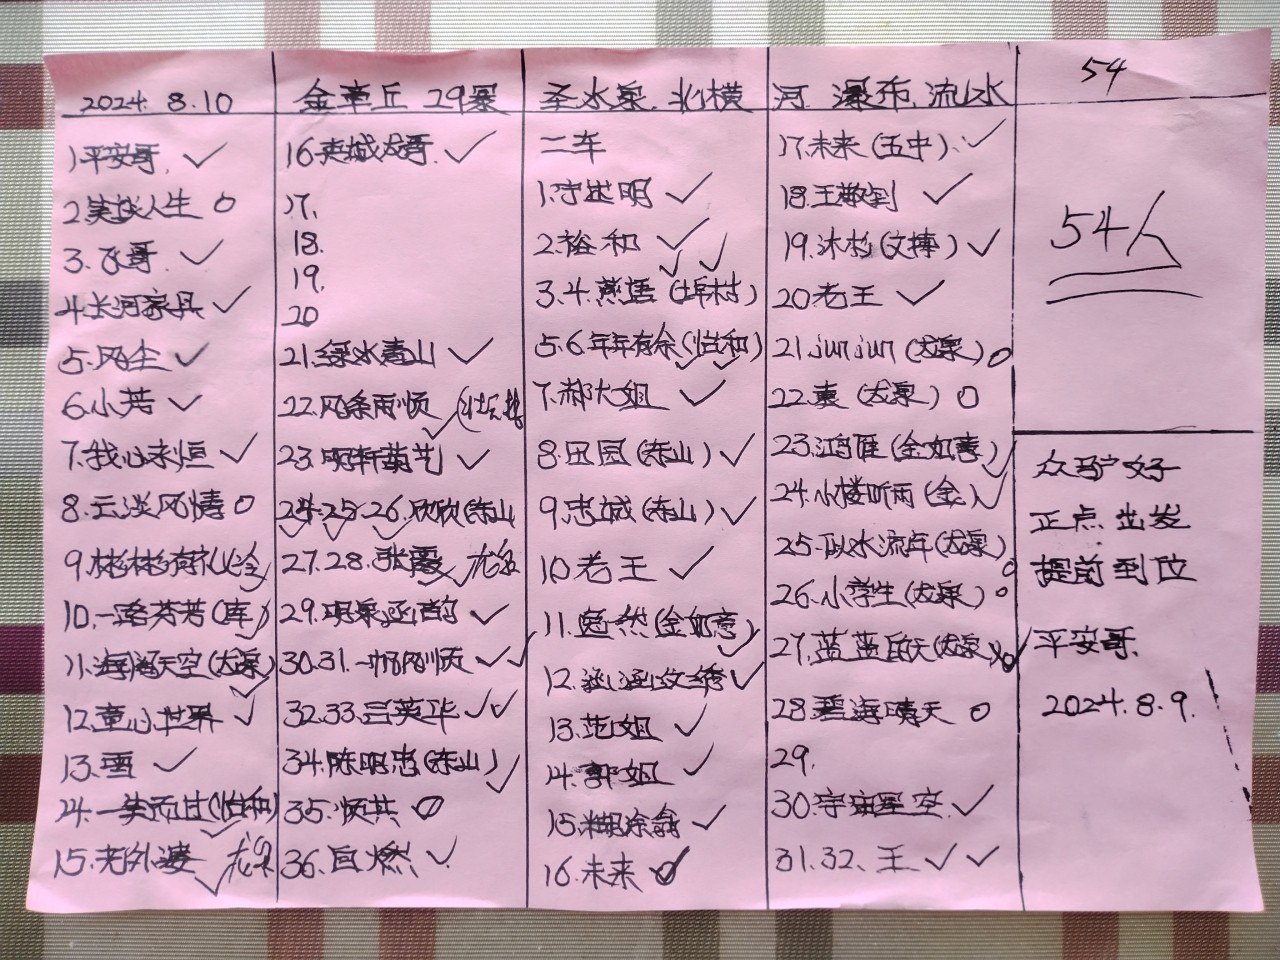 2024.8.10
1.平安哥
2.笑谈人生
3.飞哥
4.长河
5.风尘
6.小芳
7.我心永恒
8.云淡风情
9.彬彬有礼
10.一路芬芳(库)
11.海阔天空(龙泉)
12.童心世界
13.雪
14.一笑而过(怡和)
15.老外婆 龙泉
金章丘 29泉
16.龙哥
17.
18.
19.
20
21.绿水青山
22.风条雨顺
23.明轩
24.25.26.欣欣(东山
27.28.张霞 龙泉
29.明泉
30.31.一帆风顺
32.33.兰英华
34.陈明忠(东山)
35.顺其
36.自燃
圣水泉.北横
二车
1.明
2.裕和
3.4.燕语
5.6.年年有余(怡和)
7.郝大姐
8.田园(东山)
9.忠诚(东山)
10.老王
11.逸然(金如意)
12.
13.范姐
14.郭姐
15.糊涂
16.未来
河 瀑布.流水
17.未来(五中)
18.王
19.沐杉(文博)
20.老王
21.junjun(龙泉)
22.(龙泉)
23.鸿雁(金如意)
24.小楼听雨(金)
25.似水流年(龙泉)
26.小学生(龙泉)
27.蓝蓝 天(龙泉)
28.碧海晴天
29.
30.宇宙星空
31.32.王
54
54人
众驴友好
正点出发
提前到位
平安哥.
2024.8.9.